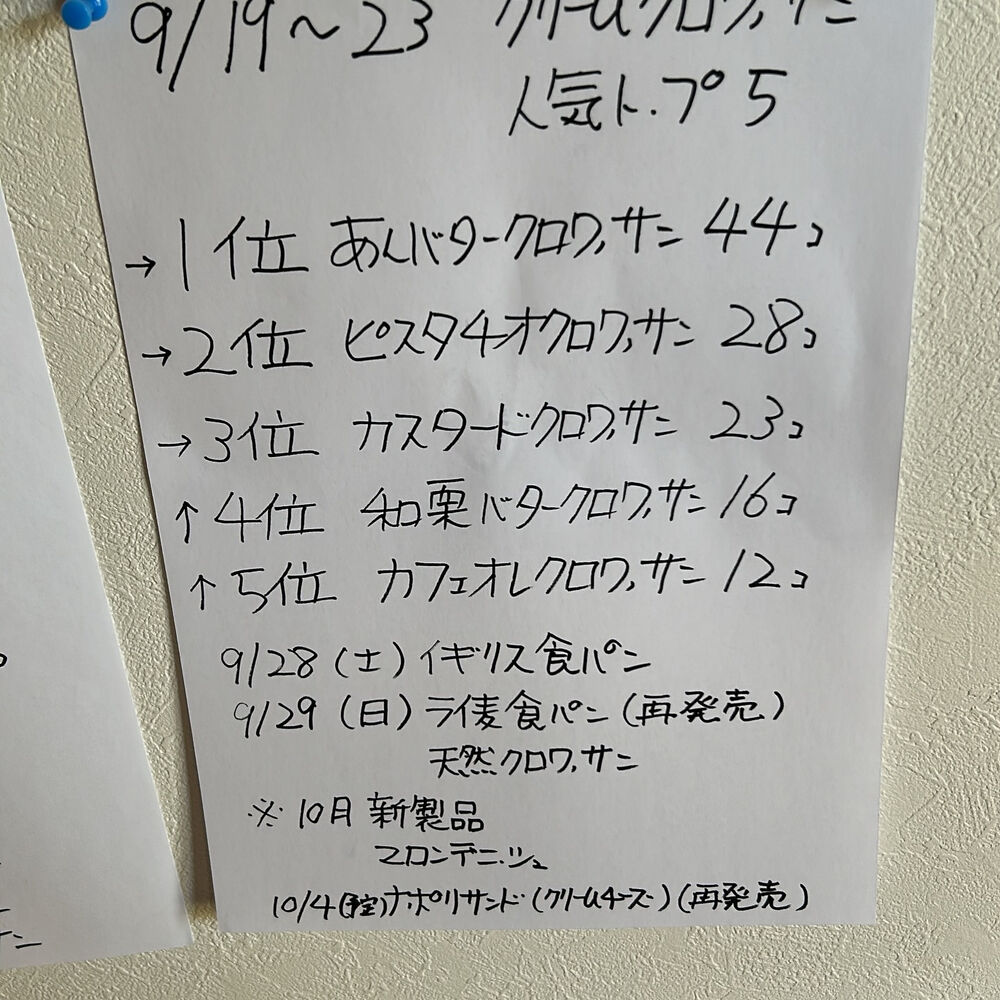 9/19～23 クリームクロワッサン
人気トップ5
→1位 あんバタークロワッサン 44コ
→2位 ピスタチオクロワッサン 28コ
→3位 カスタードクロワッサン 23コ
↑4位 和栗バタークロワッサン 16コ
↑5位 カフェオレクロワッサン 12コ
9/28(土)イギリス食パン
9/29(日)ライ麦食パン(再発売)
天然クロワッサン
※10月新製品
マロンデニッシュ
10/4(予定)ナポリサンド(クリームチーズ)(再発売)